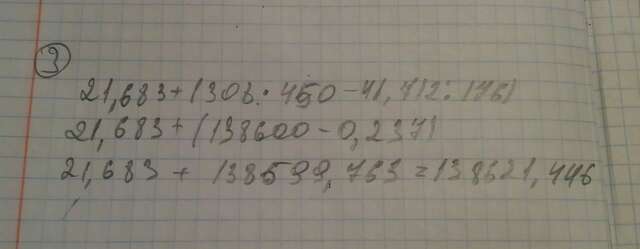 3
21,683+(308·450-41,712:176)
21,683+(138600-0,237)
21,683+ 138599,763=138621,446